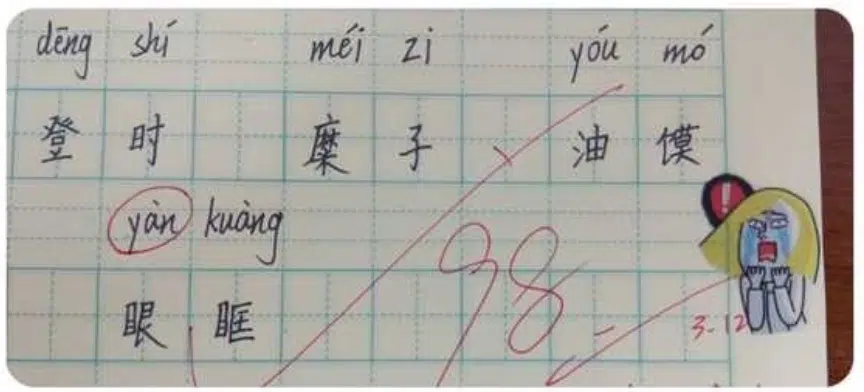 dēng shí méi zi yóu mó
登时 糜子、油馍
yàn kuàng
眼眶
98
3.12